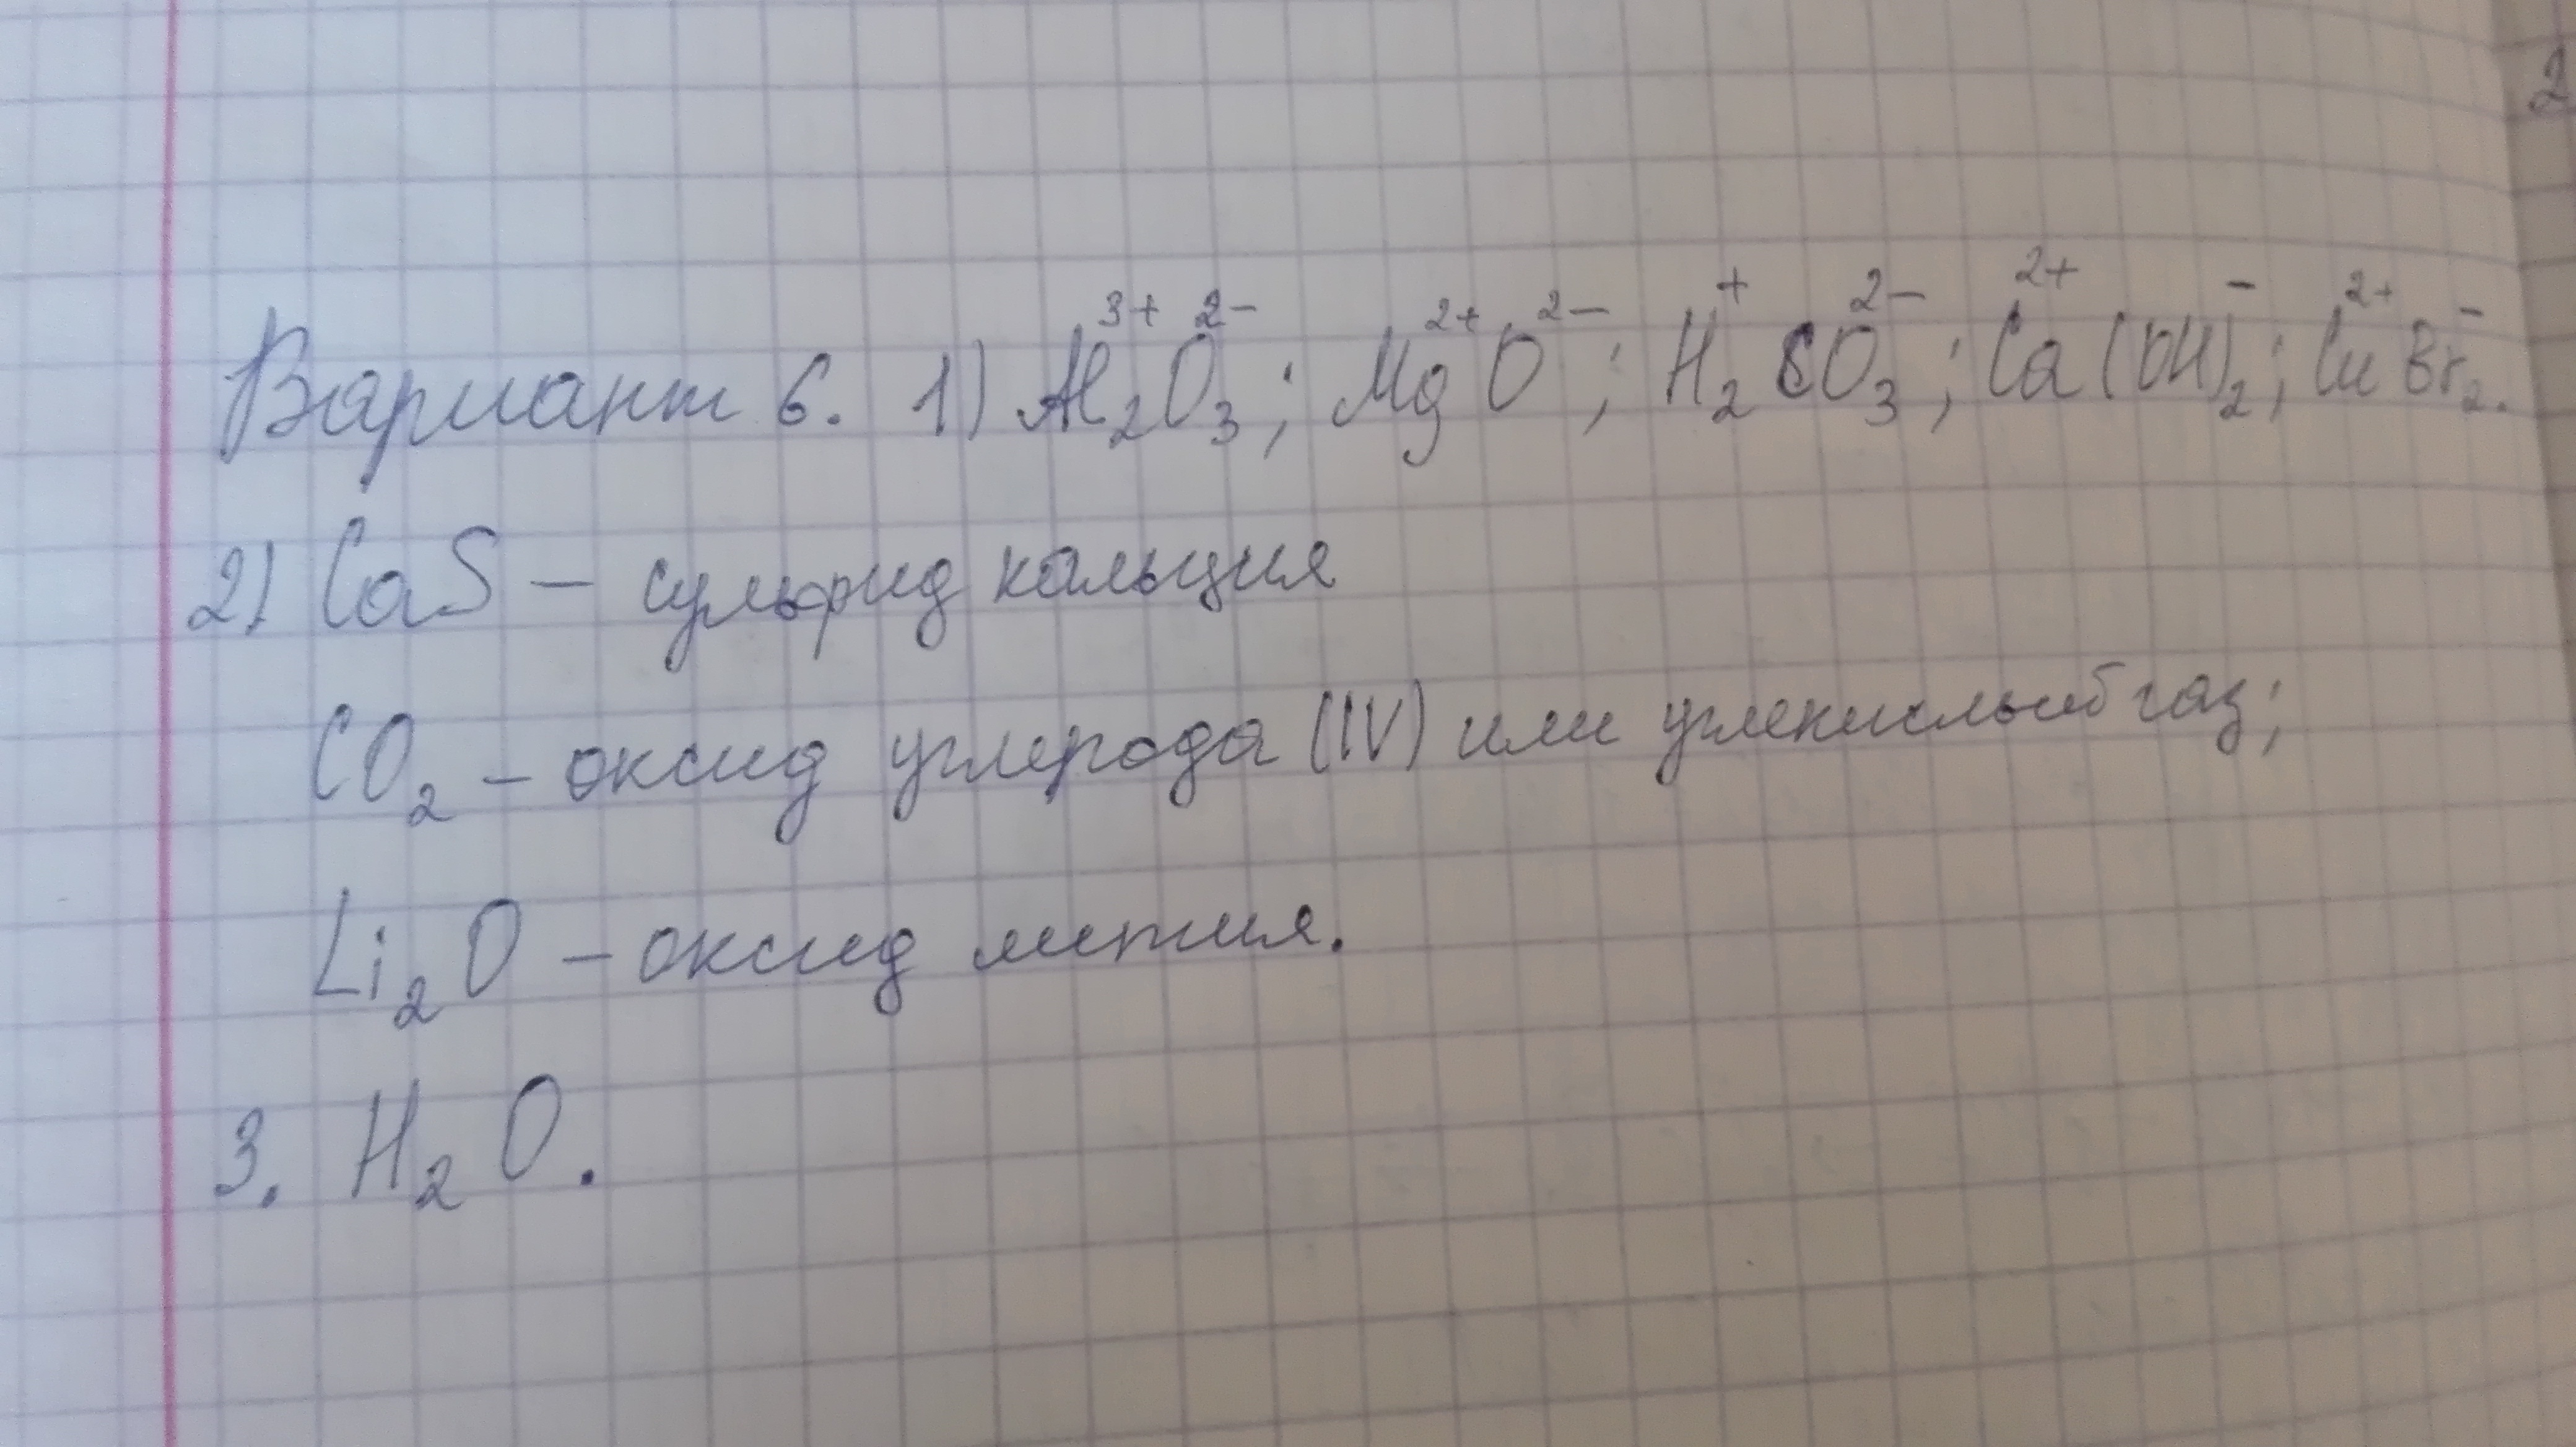 2
Вариант 6. 1) Al₂³⁺O₃²⁻; Mg²⁺O²⁻; H₂⁺SO₃²⁻; Ca²⁺(OH)₂⁻; Cu²⁺Br₂⁻.
2) CaS – сульфид кальция
CO₂ – оксид углерода (IV) или углекислый газ;
Li₂O – оксид лития.
3. H₂O.